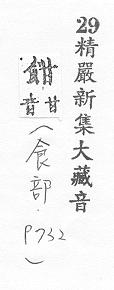 29精嚴新集大藏音
甘
音
(食部. P732)